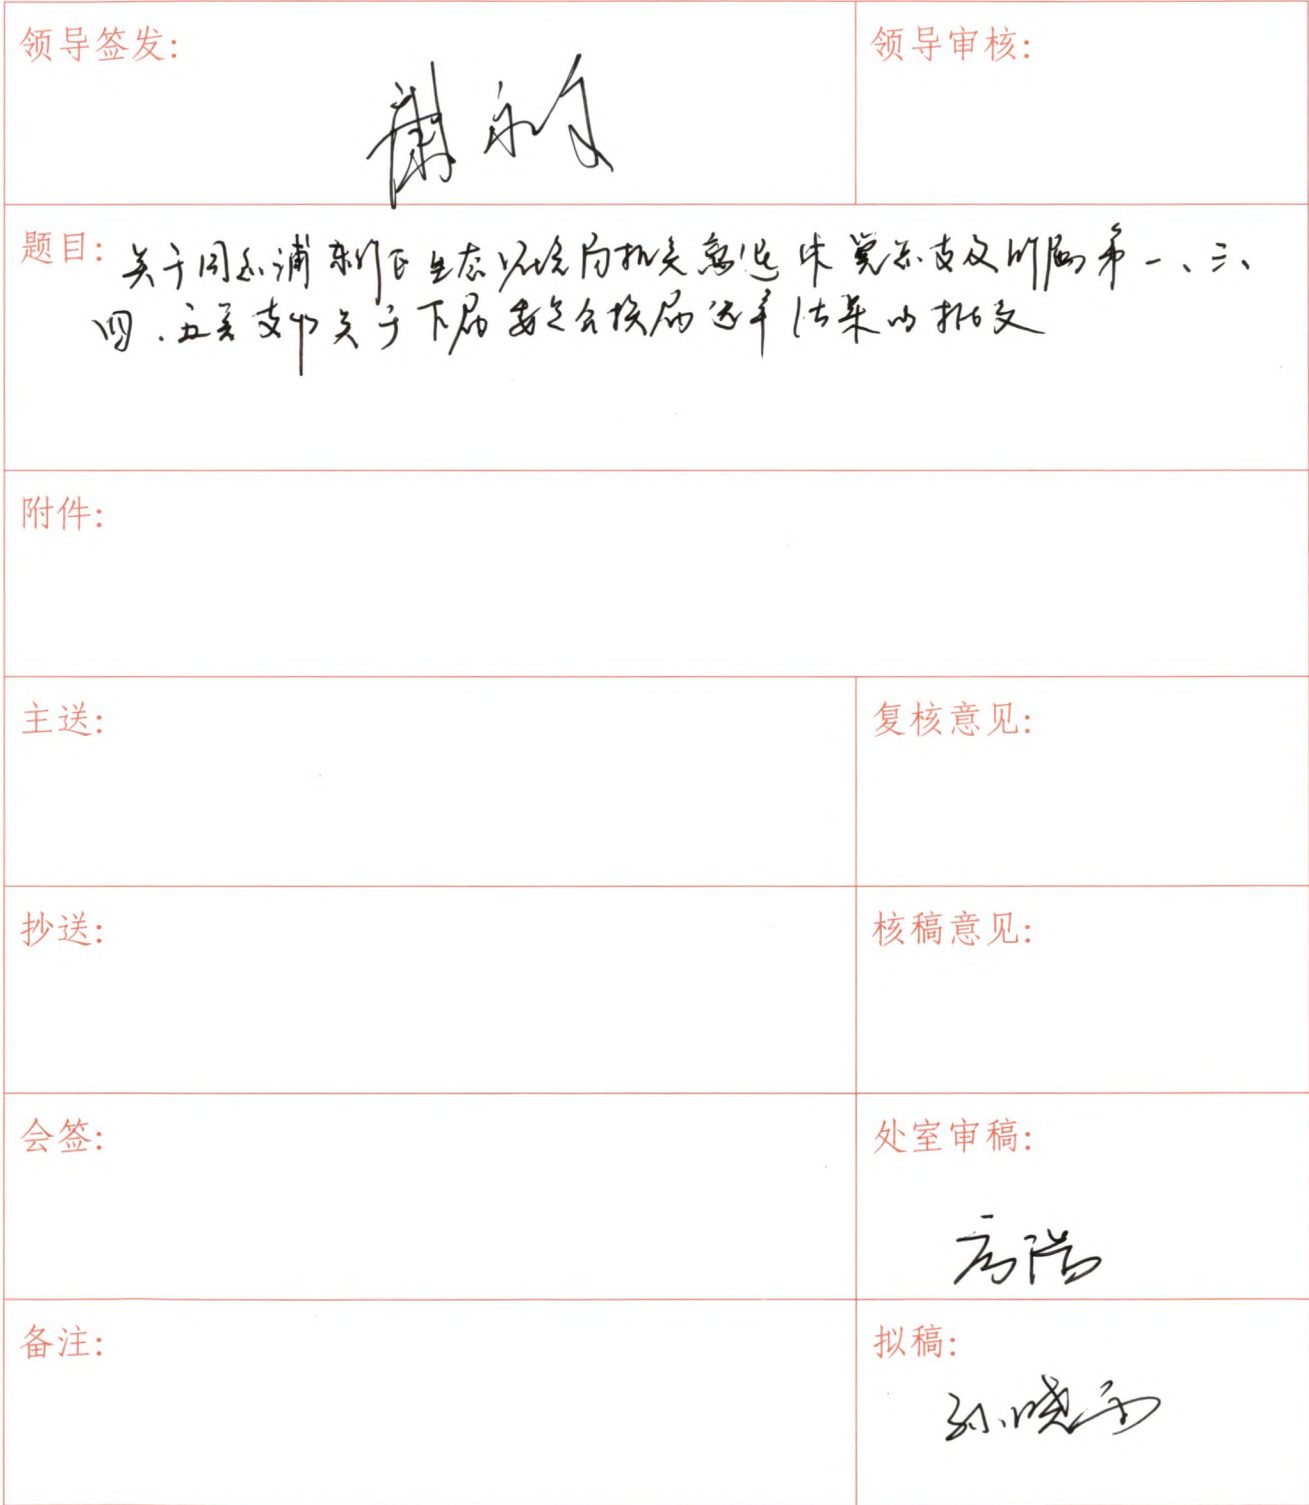 领导签发:
领导审核:
题目: 关于同意浦东新区生态环境局机关离退休党总支及所属第一、三、
四、五党支部关于下届委员会换届选举结果的批复
附件:
主送:
复核意见:
抄送:
核稿意见:
会签:
处室审稿:
备注:
拟稿:
孙晓